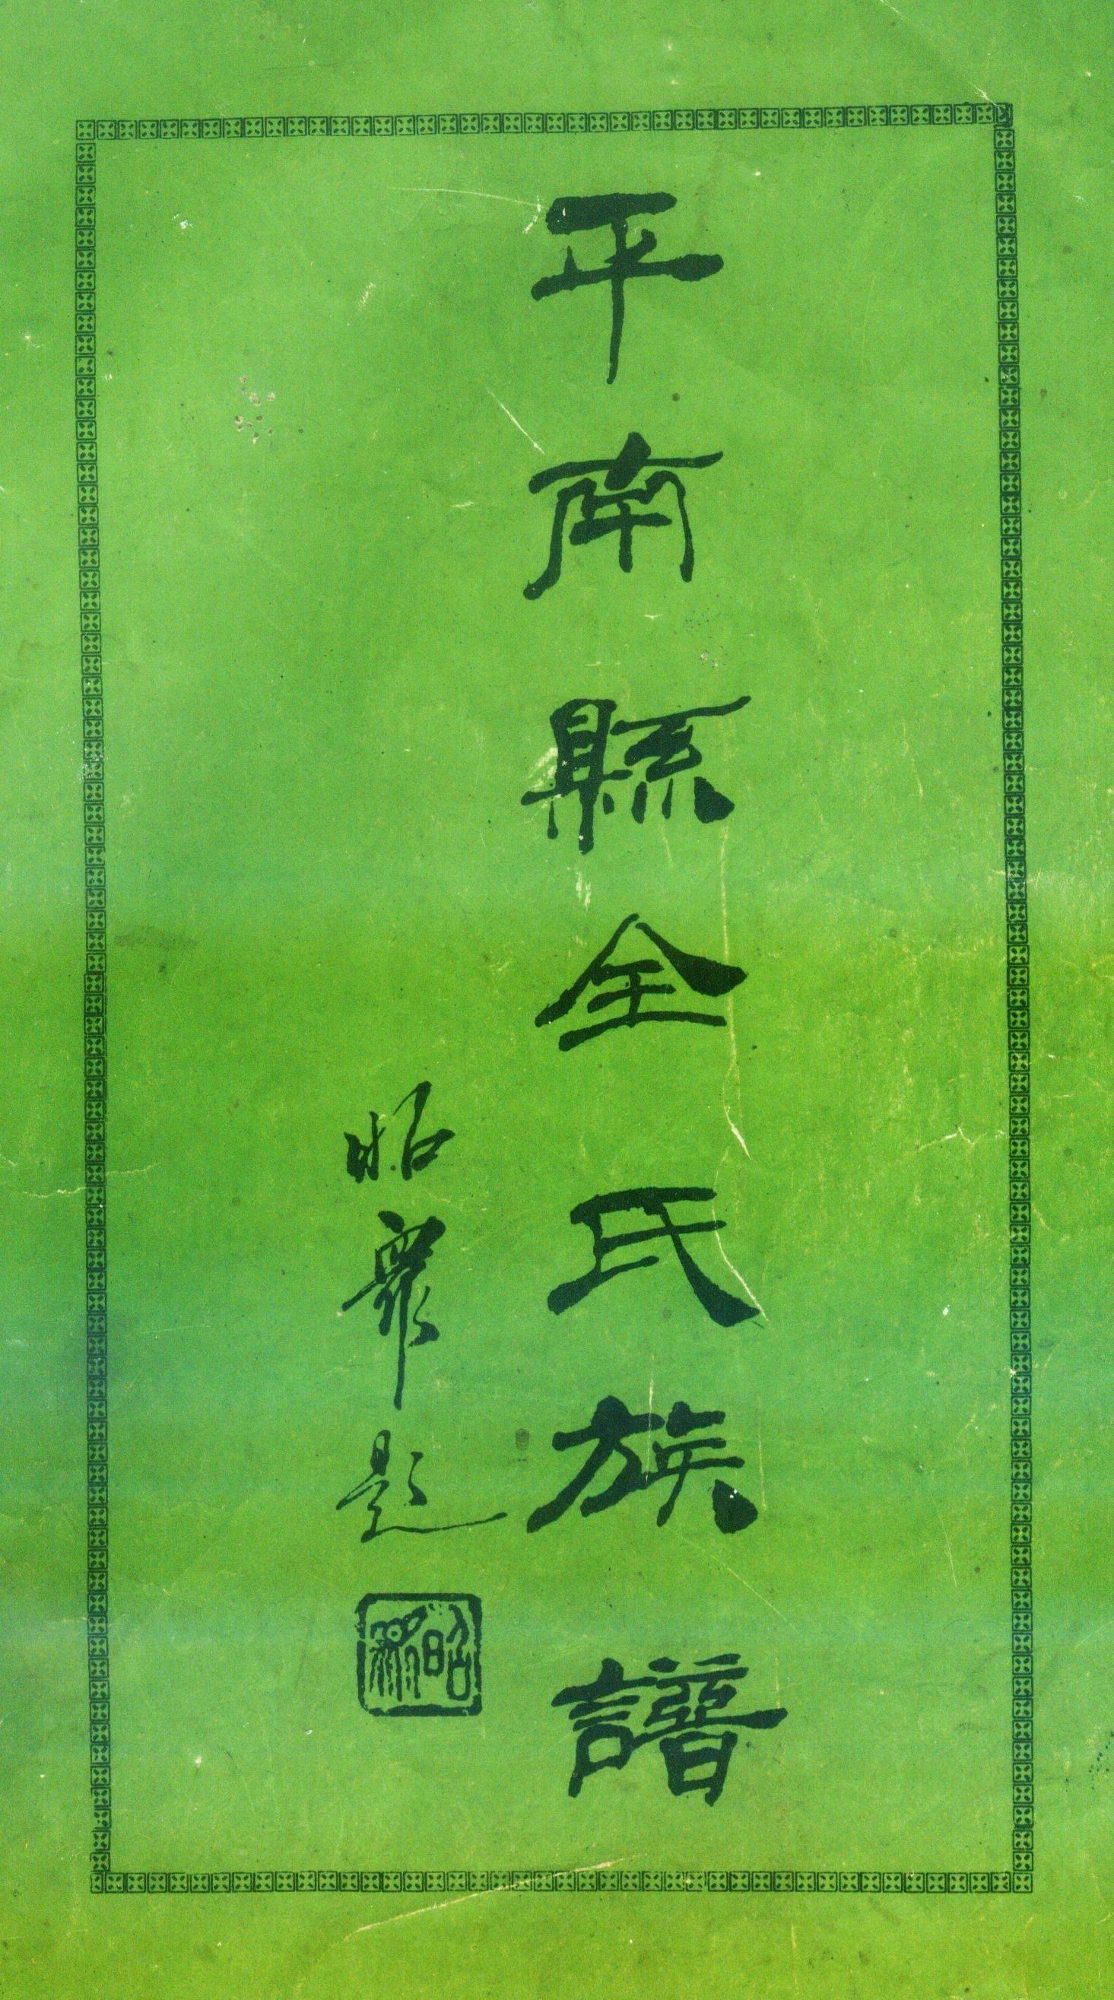 平南縣全氏族譜
昭衆題
昭衆